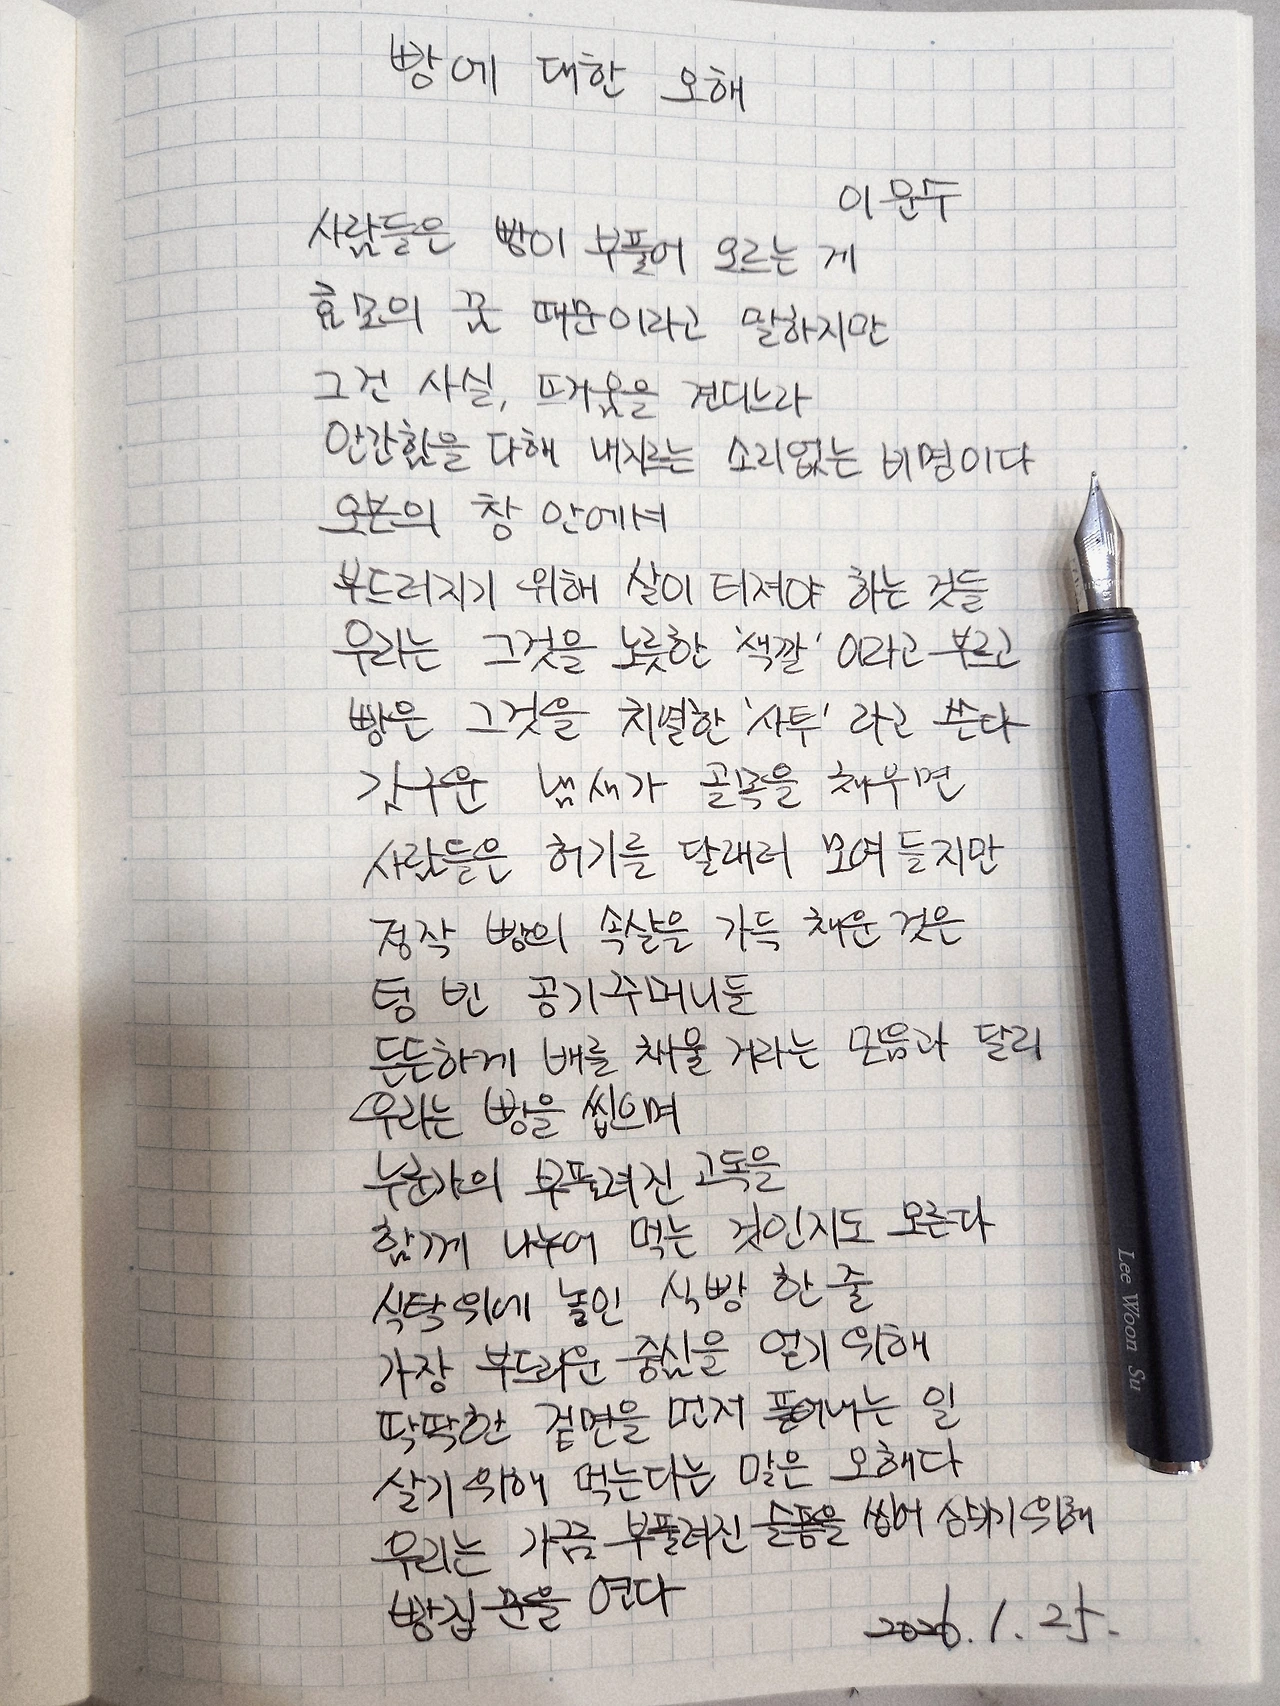 빵에 대한 오해
이운수
사람들은 빵이 부풀어 오르는 게
효모의 꿈 때문이라고 말하지만
그건 사실, 뜨거움을 견디느라
안간힘을 다해 내지르는 소리없는 비명이다
오븐의 창 안에서
부드러지기 위해 살이 터져야 하는 것들
우리는 그것을 노릇한 '색깔' 이라고 부르고
빵은 그것을 치열한 '사투' 라고 쓴다
갓구운 냄새가 골목을 채우면
사람들은 허기를 달래러 모여 들지만
정작 빵의 속살을 가득 채운 것은
텅 빈 공기주머니들
든든하게 배를 채울 거라는 믿음과 달리
우리는 빵을 씹으며
누군가의 부풀려진 고독을
함께 나누어 먹는 것인지도 모른다
식탁위에 놓인 식빵 한 줄
가장 부드러운 중심을 얻기 위해
딱딱한 겉면을 먼저 뜯어내는 일
살기 위해 먹는다는 말은 오해다
우리는 가끔 부풀려진 슬픔을 씹어 삼키기 위해
빵집 문을 연다
2026. 1. 25.
Lee Woon Su